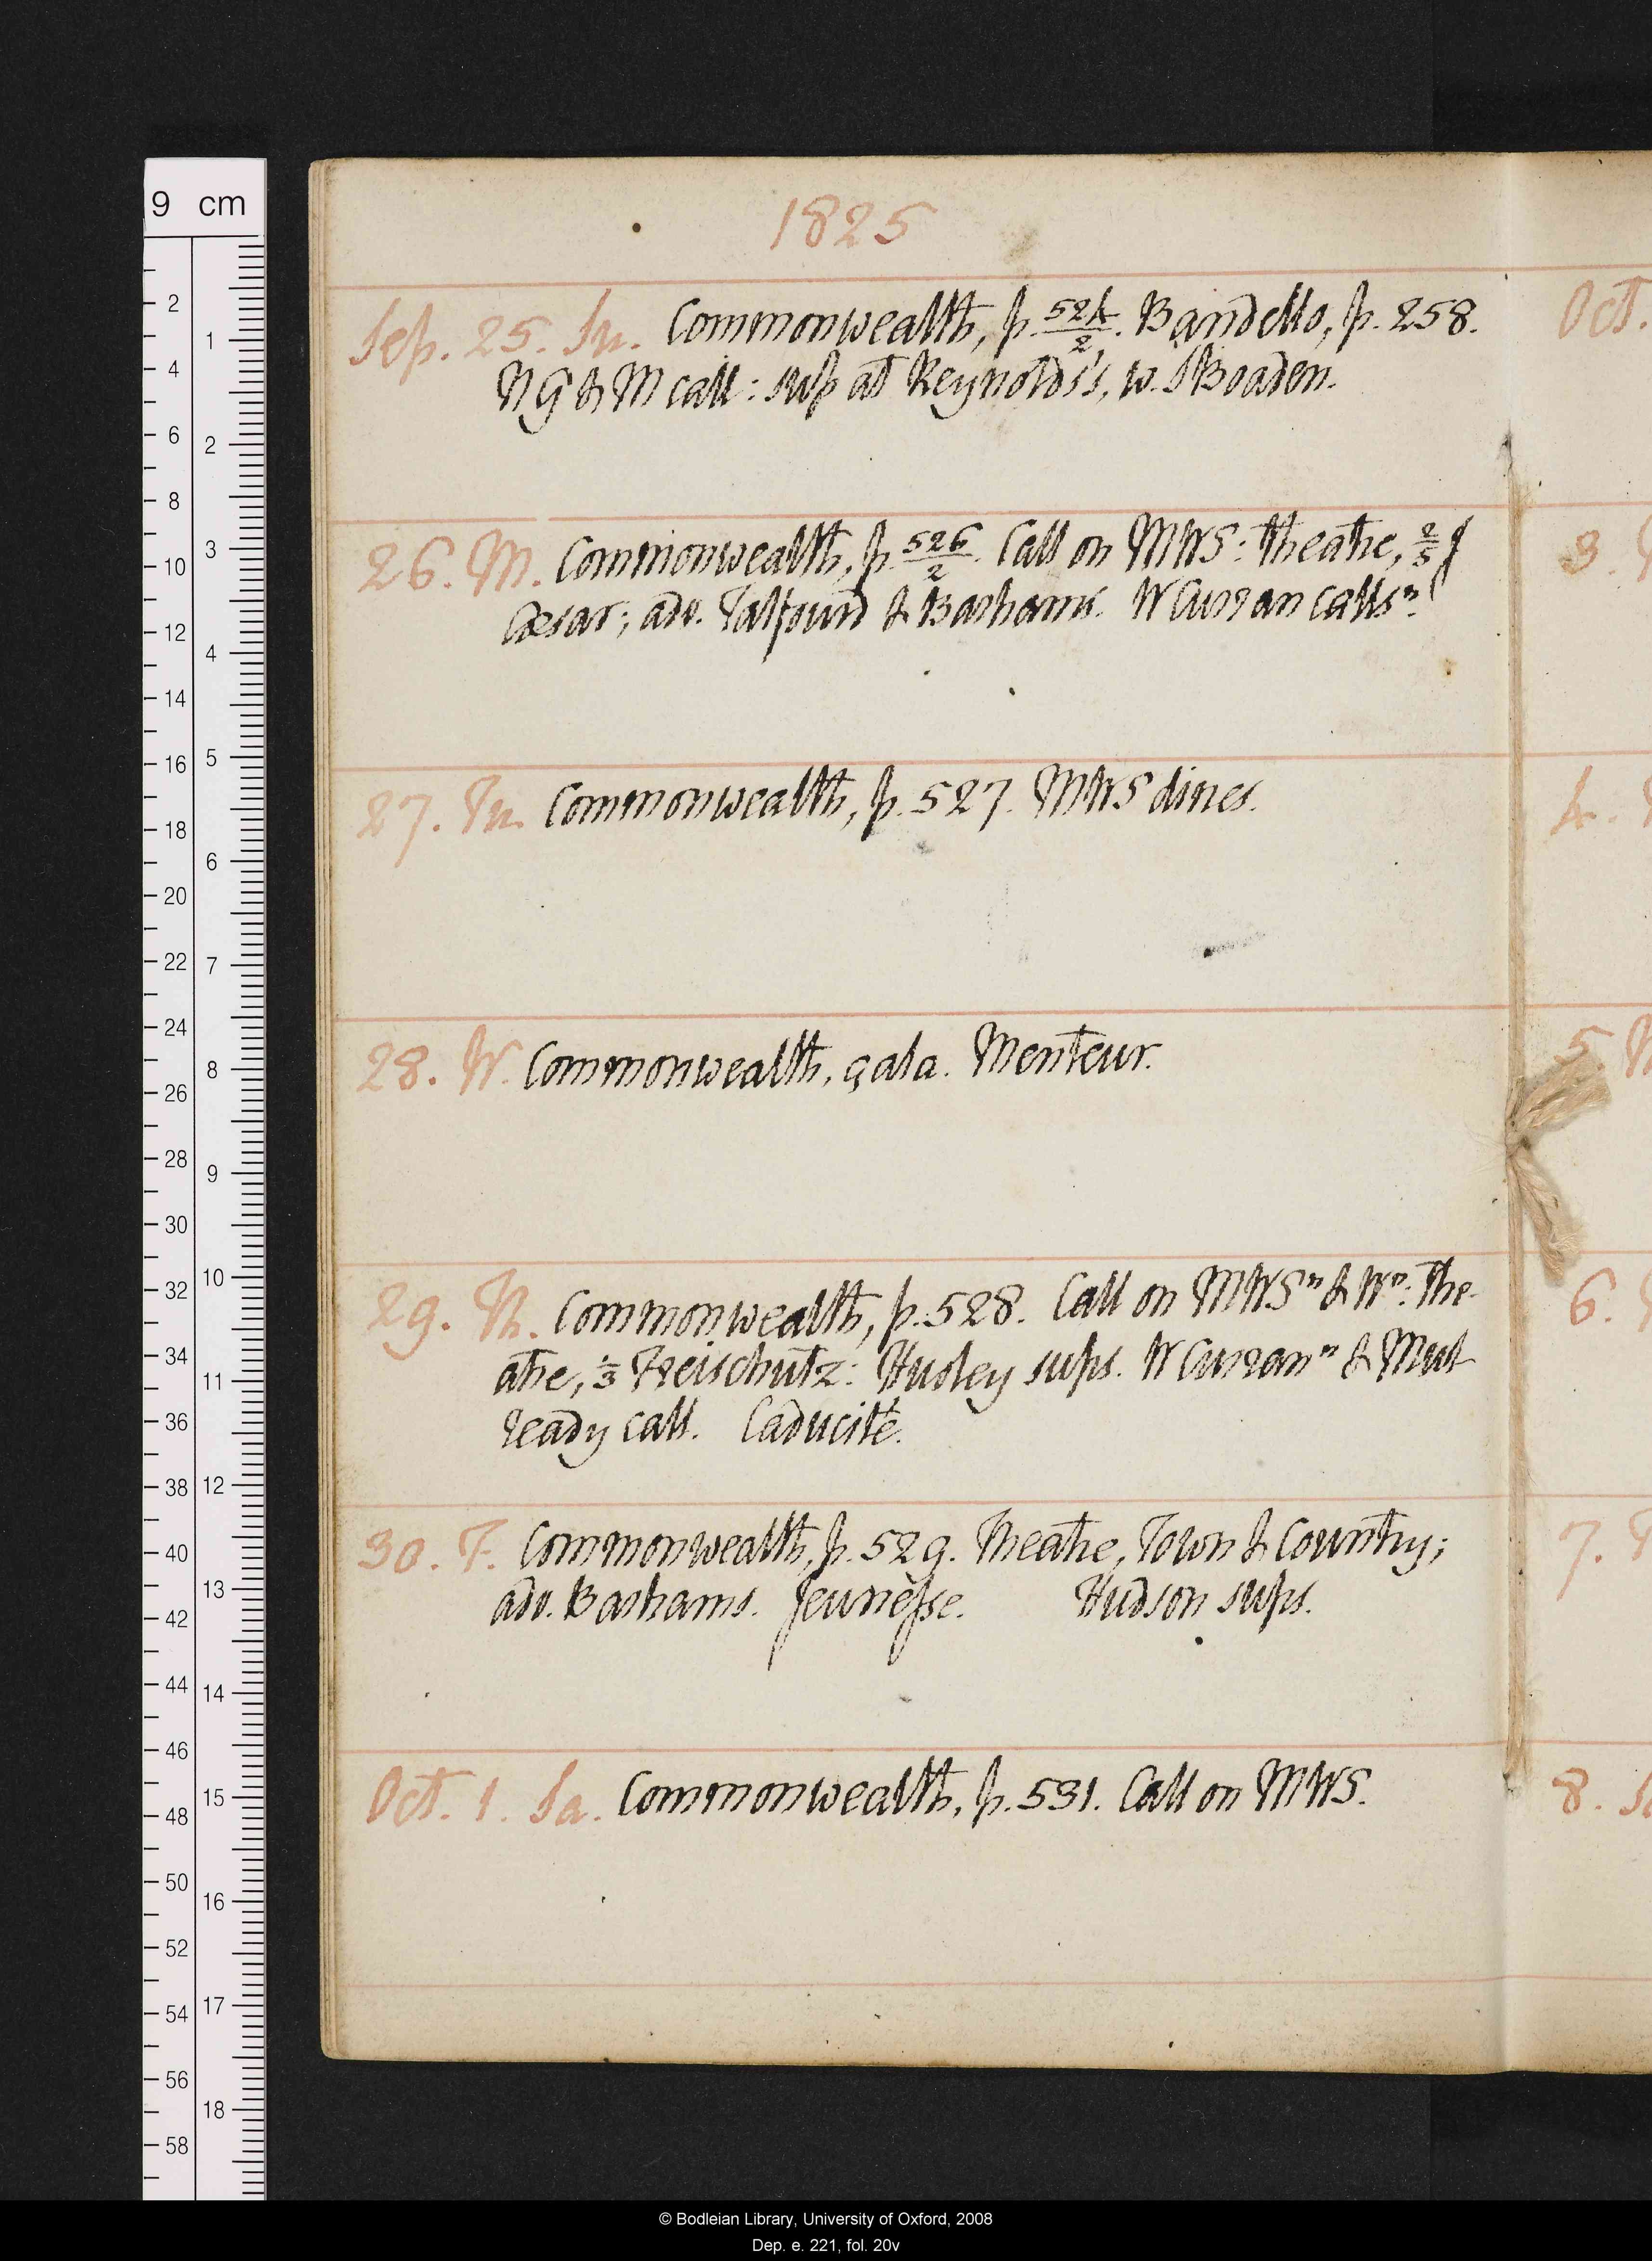 1825
Sep. 25. Su. Commonwealth, p. 524/2. Bandello, p. 258.
N G & M call: sup at Reynolds's, w. Boaden.
26. M. Commonwealth, p. 526/2. Call on MWS: theatre, 2/5 J
Cæsar; adv. Talfourd & Bashams. W Curran callsⁿ.
27. Tu. Commonwealth, p. 527. MWS dines.
28. W. Commonwealth, çala. Menteur.
29. Th. Commonwealth, p. 528. Call on MWSⁿ & Wⁿ: the-
atre, 1/3 Freischutz: Hudley sups. W Curranⁿ & Mul-
ready call. Caducité.
30. F. Commonwealth, p. 529. Theatre, Town & Country;
adv. Bashams. Jeunèsse. Hudson sups.
Oct. 1. Sa. Commonwealth, p. 531. Call on MWS.
Oct.
3.
4.
5.
6.
7.
8.
9 cm
2 4 6 8 10 12 14 16 18 20 22 24 26 28 30 32 34 36 38 40 42 44 46 48 50 52 54 56 58
1 2 3 4 5 6 7 8 9 10 11 12 13 14 15 16 17 18
© Bodleian Library, University of Oxford, 2008
Dep. e. 221, fol. 20v